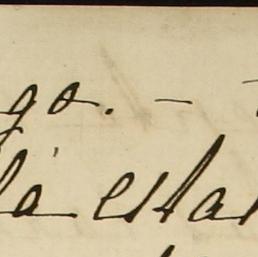 go. —
la estar